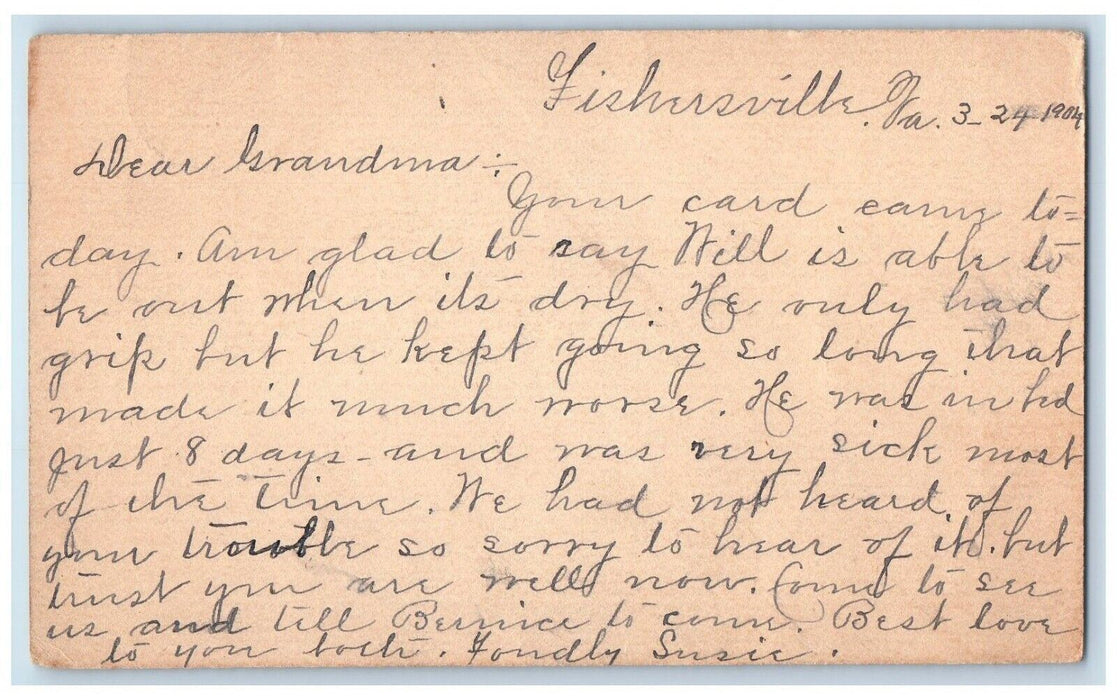 Fishersville, Va. 3-24 1904
Dear Grandma:-
Your card came to=
day. Am glad to say Will is able to
be out when its dry. He only had
grip but he kept going so long that
made it much worse. He was in bed
just 8 days - and was very sick most
of the time. We had not heard of
your trouble so sorry to hear of it. but
trust you are well now. Come to see
us and tell Bernice to come. Best love
to you both. Fondly Susie.